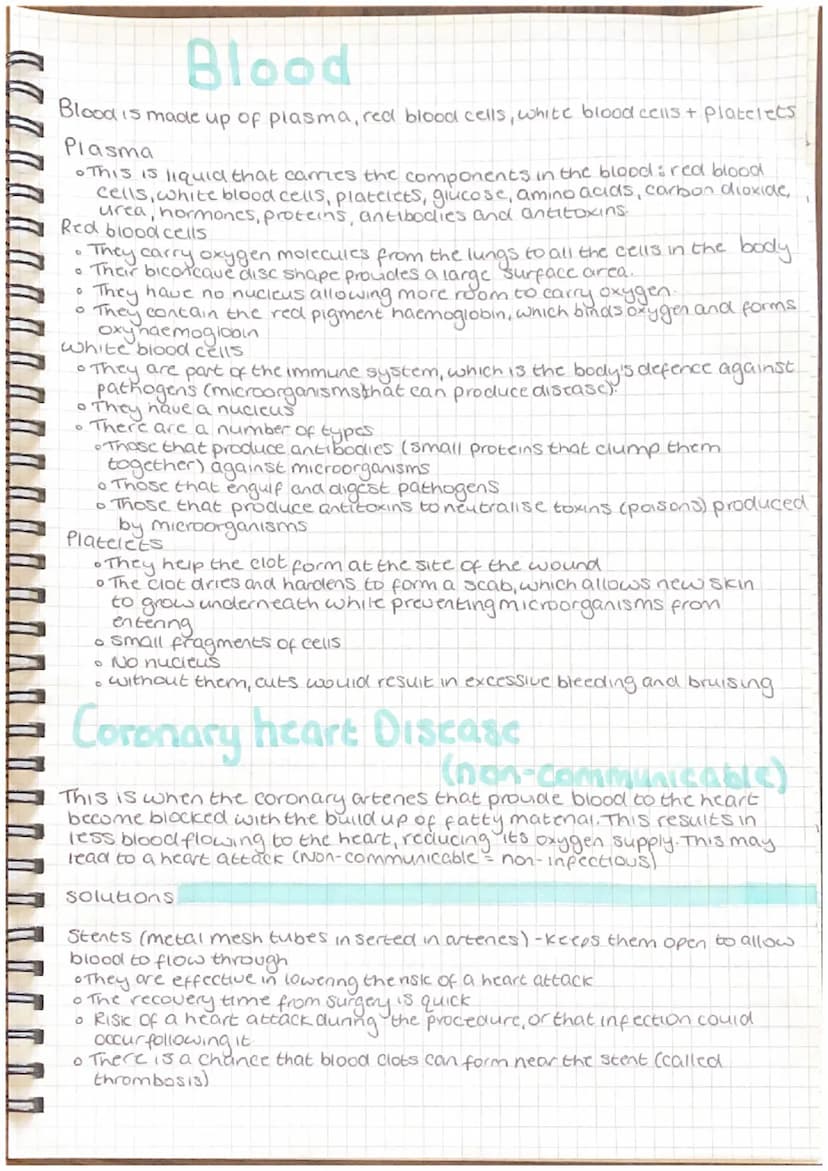 Blood
Blood is made up of plasma, red blood cells, white blood cells + platelets
Plasma
• This is liquid that carries the components in the blood: red blood
cells, white blood cells, platelets, glucose, amino acids, carbon dioxide,
urea, hormones, proteins, antibodies and antitoxins.
Red blood cells
• They carry oxygen molecules from the lungs to all the cells in the body
• Their biconcave disc shape provides a large surface area.
• They have no nucleus allowing more room to carry oxygen.
• They contain the red pigment haemoglobin, which binds oxygen and forms
oxyhaemoglobin
White blood cells
• They are part of the immune system, which is the body's defence against
pathogens (microorganisms that can produce disease).
• They have a nucleus
• There are a number of types
• Those that produce antibodies (small proteins that clump them
together) against microorganisms
• Those that engulf and digest pathogens
• Those that produce antitoxins to neutralise toxins (poisons) produced
by microorganisms
Platelets
• They help the clot form at the site of the wound
• The clot dries and hardens to form a scab, which allows new skin
to grow underneath while preventing microorganisms from
entering
• Small fragments of cells
• No nucleus
• Without them, cuts would result in excessive bleeding and bruising
Coronary heart Disease
(non-communicable)
This is when the coronary arteries that provide blood to the heart
become blocked with the build up of fatty material. This results in
less blood flowing to the heart, reducing its oxygen supply. This may
lead to a heart attack (Non-communicable = non-infectious)
Solutions
Stents (metal mesh tubes inserted in arteries) - Keeps them open to allow
blood to flow through
• They are effective in lowering the risk of a heart attack
• The recovery time from surgery is quick
• Risk of a heart attack during the procedure, or that infection could
occur following it
• There is a chance that blood clots can form near the stent (called
thrombosis)